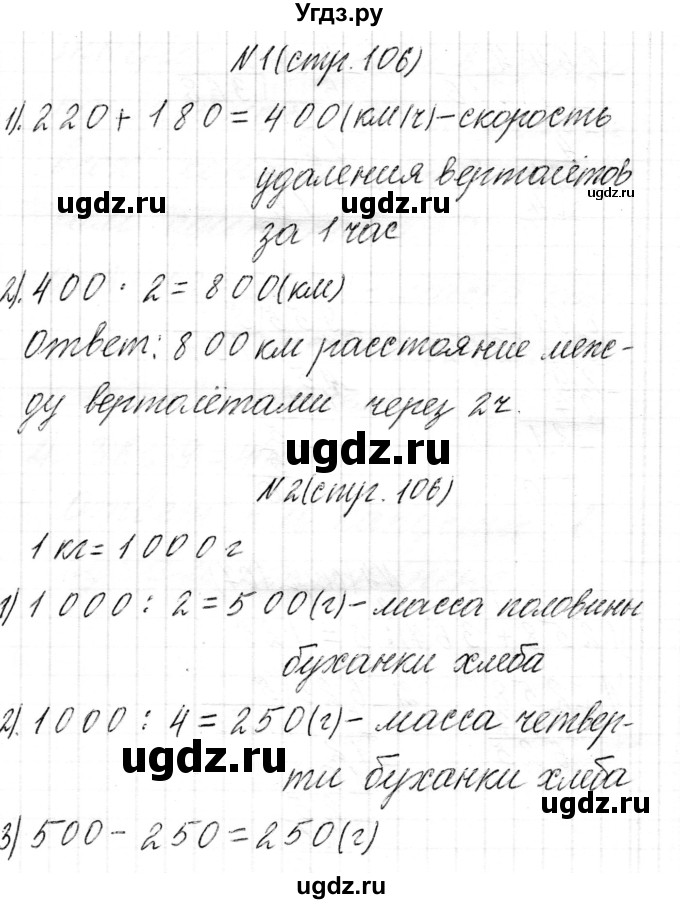 Угдз.ру
N1(стр. 106)
1). 220 + 180 = 400(км/ч) - скорость
удаления вертолётов
ugdz.ru
ugdz.ru
ugdz.ru
за 1 час
2). 400 · 2 = 800(км)
Ответ: 800 км расстояние меж-
ду вертолётами через 2ч.
ugdz.ru
N2(стр. 106)
1 кг = 1000 г
1) 1000 : 2 = 500(г) - масса половины
буханки хлеба
2). 1000 : 4 = 250(г) - масса четвер-
ugdz.ru
ти буханки хлеба
ugdz.ru
3) 500 - 250 = 250(г)
ugdz.ru